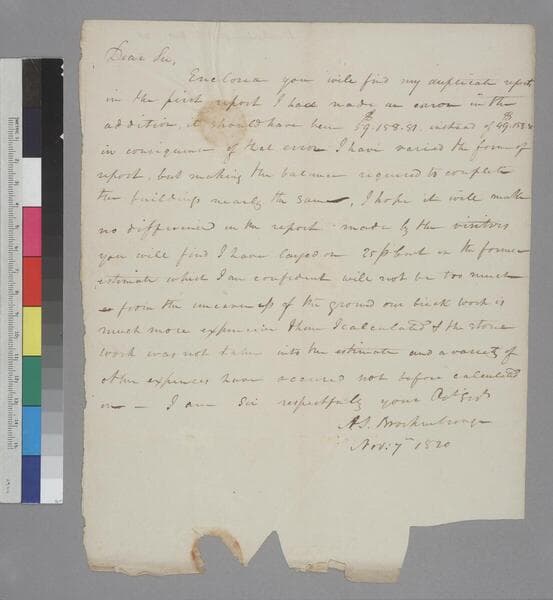 Dear Sir,
Enclosed you will find my duplicate report
in the first report I had made an error in the
addition, it should have been 59.158.81. instead of 49.158.8
in consequence of that error I have varied the form of
report, but making the balance required to complete
the buildings nearly the same, I hope it will make
no difference in the report made by the visitors
you will find I have layed on 25 pCent on the former
estimate which I am confident will not be too much
from the uneaveness of the ground our brick work is
much more expensive than I calculated & the stone
work was not taken into the estimate and a variety of
other expenses have accured not before calculated
on — I am Sir respectfully your Obt Servt
A.S. Brockenbrough
Nov: 7th 1820